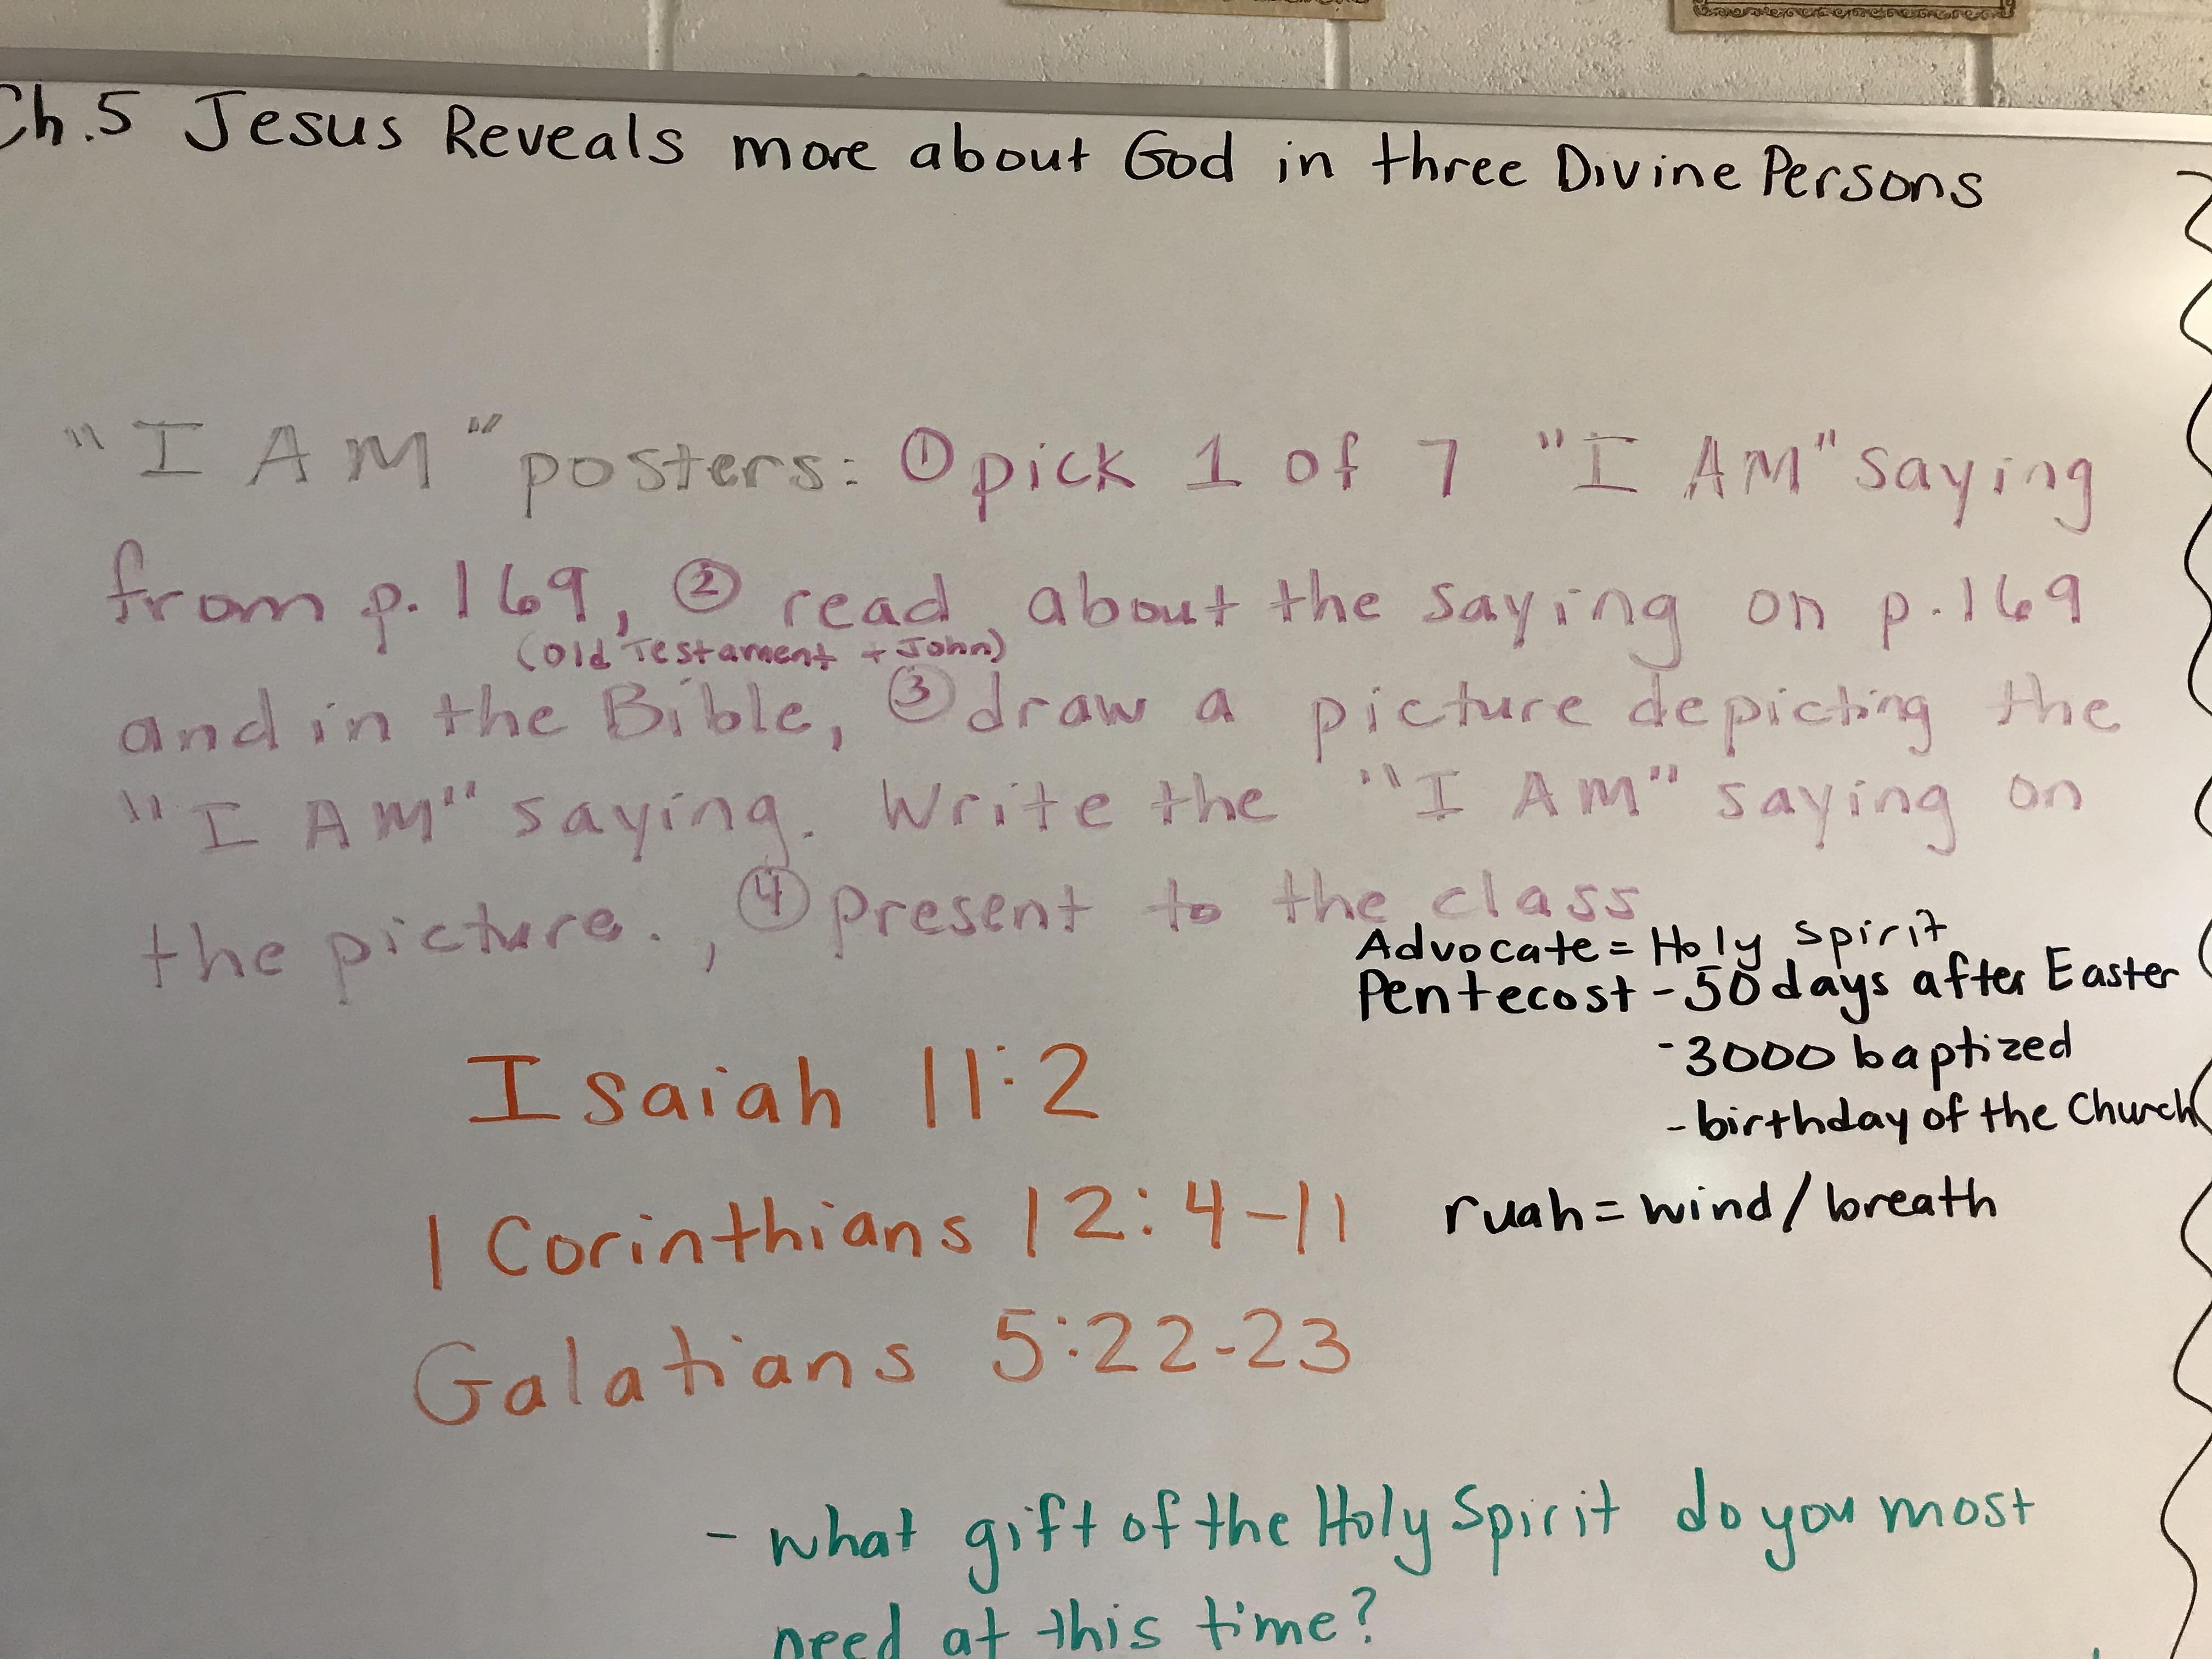 Ch.5 Jesus Reveals more about God in three Divine Persons
"I AM" posters: ① pick 1 of 7 "I AM" saying
from p.169, ② read about the saying on p.169
(Old Testament + John)
and in the Bible, ③ draw a picture depicting the
"I AM" saying. Write the "I AM" saying on
the picture., ④ present to the class
Advocate = Holy Spirit
Pentecost - 50 days after Easter
- 3000 baptized
- birthday of the Church
Isaiah 11:2
1 Corinthians 12:4-11
ruah = wind/breath
Galatians 5:22-23
- what gift of the Holy Spirit do you most
need at this time?